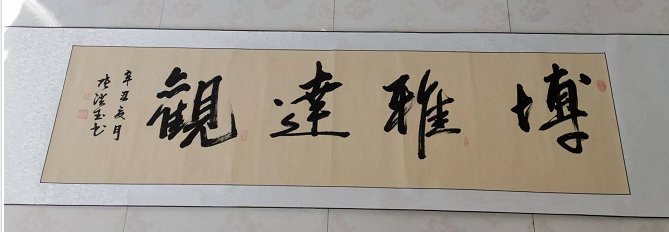 博雅達觀
辛丑夏月
书